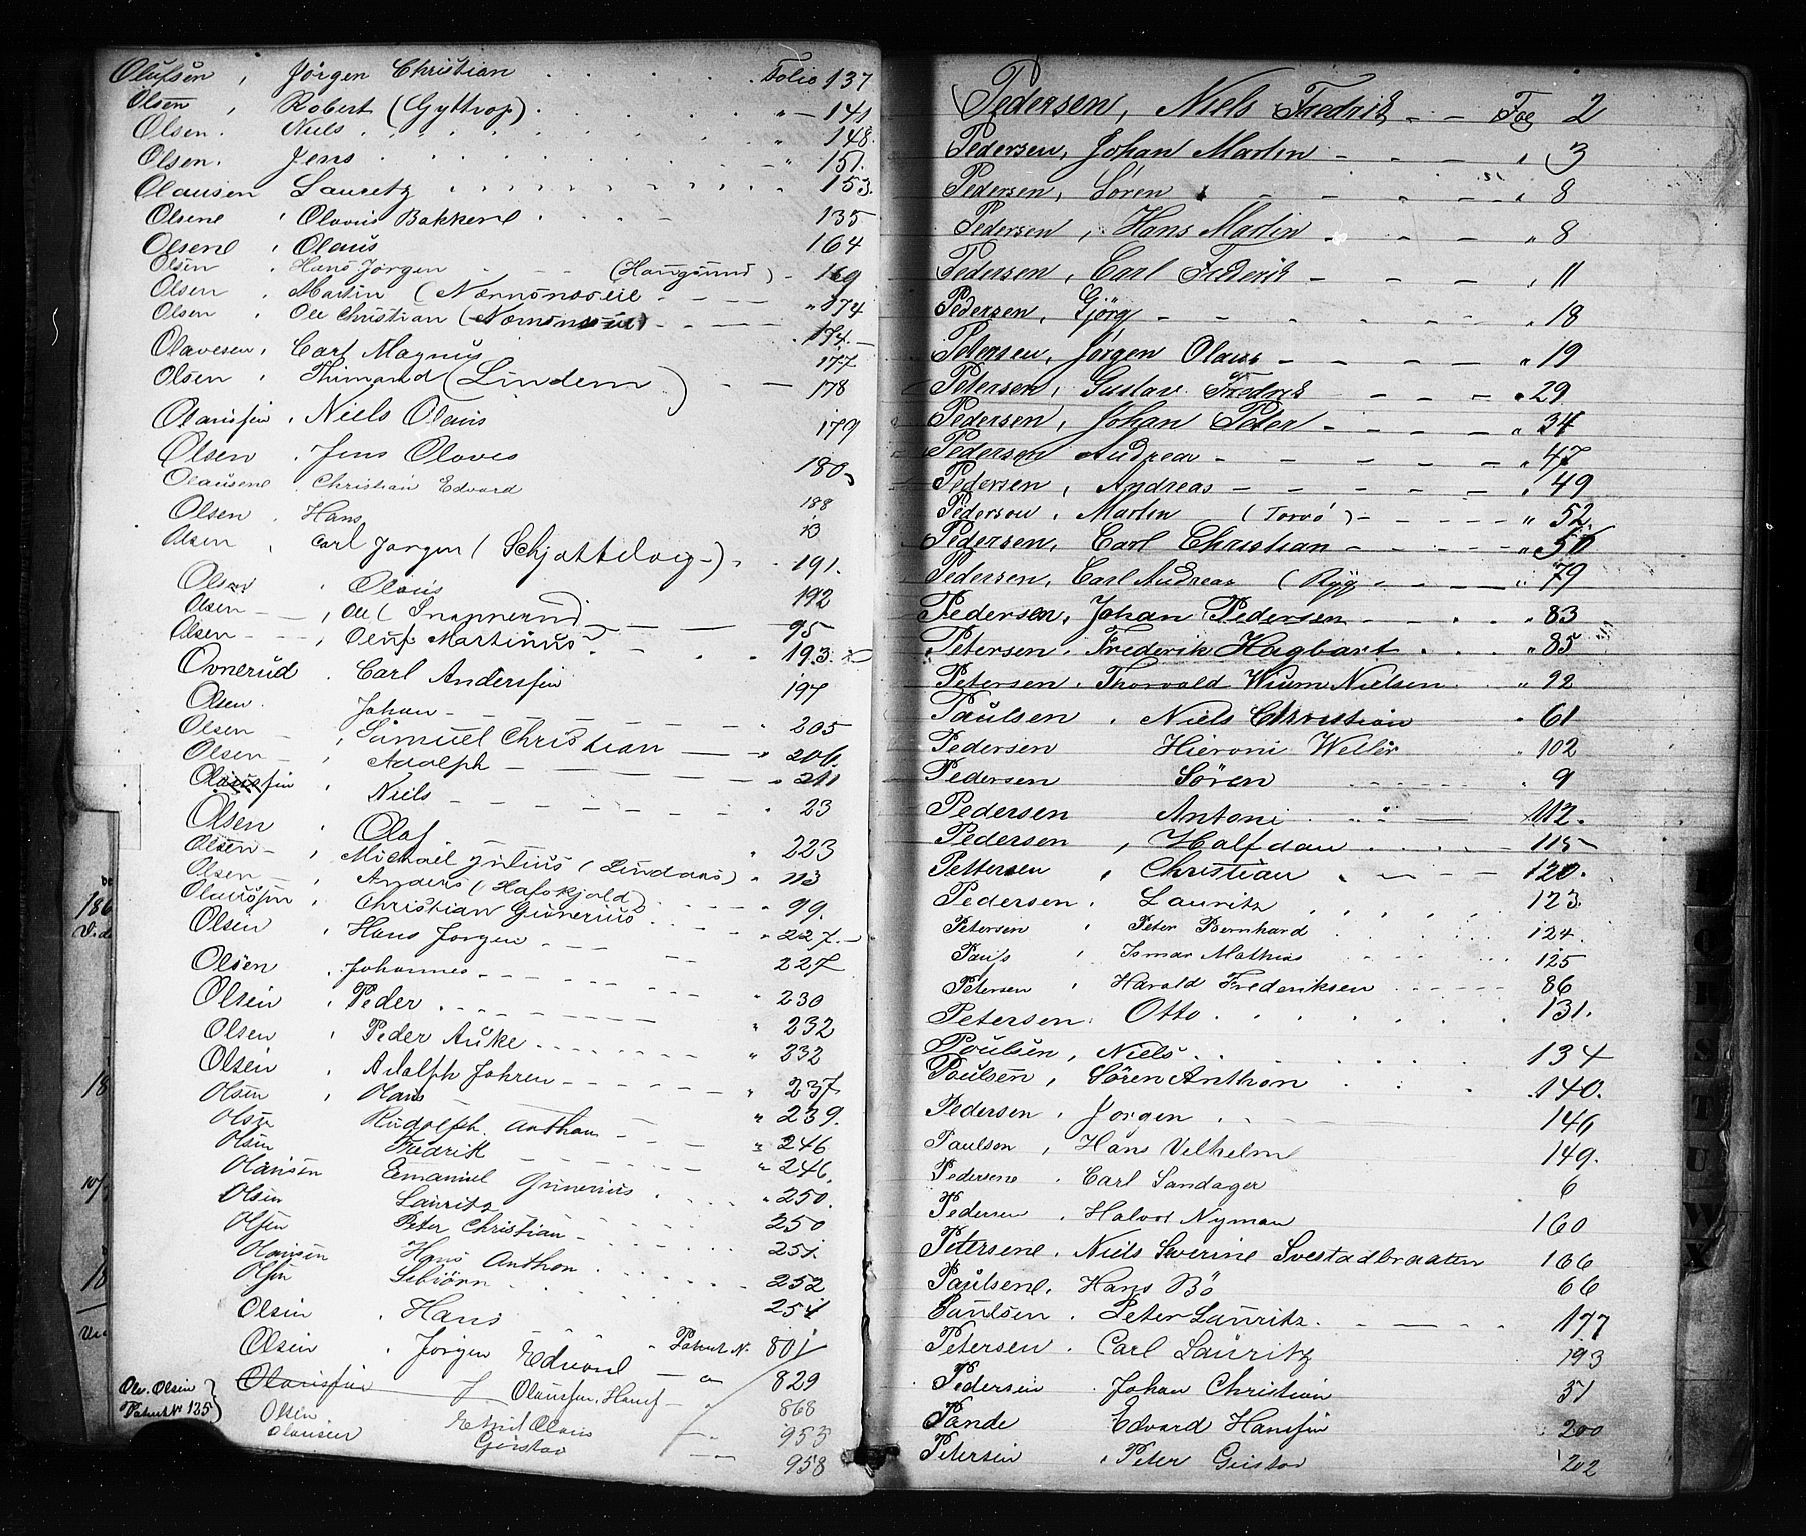 Olufsen, Jörgen Christian . . . . . Folio 137
Olsen, Robert (Gyttrop) . . . . " — 141
Olsen. Niels . . . . . . . " 148.
Olsen. Jens . . . . . . . " 151.
Olausen Lauritz . . . . . . . 153.
Olsene, Olavus Bakkene . . . . 135
Olsene, Olaus 164
Olsen, Hans Jörgen - - - (Haugsund) - 169
Olsen, Martin ( - - - " 174
Olsen, Ole Christian ( - - - 174.
Olavesen, Carl Magnus 177
Olsen, (Lindem) - — 178
Olausfen, Niels Olaus 179
Olsen, Jens Olaves 180
Olausene. Christian Edvard 188
Olsen. Hans 13
Olsen, Carl Jörgen (Schjattelvig -) - . 191.
Olsen, Olaus 192
Olsen —, Ole ( — — 95
Olsen - -, Oluf Martinius - - . . 193.
Ovnerud. Carl Andersfen 197
Olsen. Johan - - - - - - . 205
Olsen —, Samuel Christian — — " 206.
Olsen —, Adolph - - - - - - " 211
Olausfen, Niels - - - - - - . 23
Olsen, Olaf . 223
Olsen -, Michael Julius (Lindaas) . 113
Olsen —, Anders (Hafskjold) . . . . 99.
Olausfen, Christian Gunerius . . . . " 227.-
Olsen, Hans Jörgen - - - 227
Olsen, Johannes - - - - " 230
Olsen, Peder . - - - - " 232
Olsen, Peder Auke - - - - - " 232
Olsen, Adolph Johren - - - - " 237.
Olsen, Hans " 239.
Olsen Rudolph. Anthon - - - " 246
Olsen Fredrik - - - - - " 246.
Olausen Emanuel Gunerius . . . . " 250.
Olsen Lauritz 250
Olsen Peter Christian - - - - - 251.
Olausen Hans Anthon . . . . . . 252
Olsen - . . . . . . 254
Olsen, Hans
Olsen, Jörgen Edvard - Patent N. 801
Olausfen Olausfen, Hans - " 829
Ole. Olsen
Patent N 135
Olsen 868
Olausen Olaus 953
Gustav 958
Pedersen, Niels Fredrik - - Fog 2
Pedersen, Johan Martin - - - , 3
Pedersen, Sören - - - - , 8
Pedersen, Hans Martin - - - " 8
Pedersen, Carl Frederik - - - - , 11
Pedersen, Gjörg - - - - - - " 18
Petersen, Jörgen Olaus - - - - " 19
Petersen, Gustav Fredrik - - - . 29
Pedersen, Johan Peter - - - - " 34
Pedersen Andreas - - - - - " 47
Pedersen, Andreas - - - - - " 49
Pedersen, Martin (Torvö) - - - - " 52.
Pedersen, Carl Christian - - - - " 56
Pedersen, Carl Andreas (Ryg - - - " 79
Pedersen, Johan Pedersen - - . . " 83
Petersen, Frederik Hagbart . . . " 85
Petersen, Thorvald Wium Nielsen . . " 92
Paulsen, Niels Christian . 61
Pedersen Hieroni Weller . 102
Pedersen Sören . . . . . 9
Pedersen Antoni . . " — 112.
Pedersen, Halfdan . . . . . 115
Pettersen, Christian . — — - 120.
Pedersen, Lauritz , , , , , 123
Petersen, Peter Bernhard . . . . . 124.
Paus, Ismar Mathias . . . . . 125
Petersen, Harald Frederiksen . . . . . 86
Petersen. Otto . . . . . . 131.
Poulsen, Niels . . . . . 134
Paulsen, Sören Anthon . . . 140.
Pedersen, Jörgen . . - 146
Paulson, Hans Vilhelm 149.
Pedersene, Carl Sandager 6
Pedersen, Halvor Nyman 160
Petersene, Niels Severine Svestadbraaten 166
Paulsene, Hans Bö 66
Paulsen, Peter Lauritz . . - - - 177
Petersen, Carl Lauritz 193
Pedersen, Johan Christian 51
Pande Edvard Hansfen 200
Petersen, Peter Gustav 202